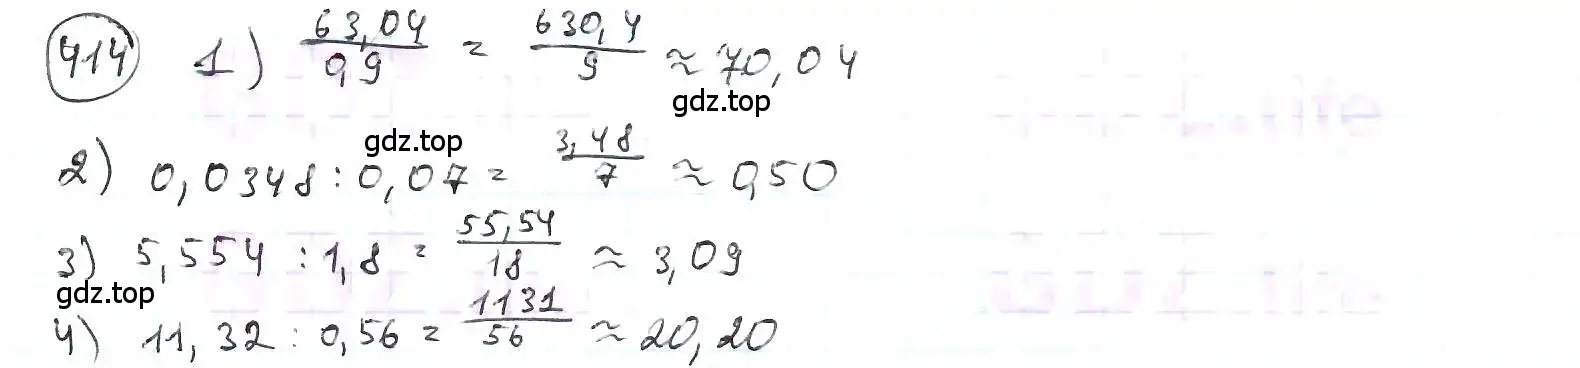 414 1) 63,04/0,9 = 630,4/9 ≈ 70,04
gdz.top
gdz.top
2) 0,0348 : 0,07 = 3,48/7 ≈ 0,50
3) 5,554 : 1,8 = 55,54/18 ≈ 3,09
gdz.top
4) 11,32 : 0,56 = 1131/56 ≈ 20,20